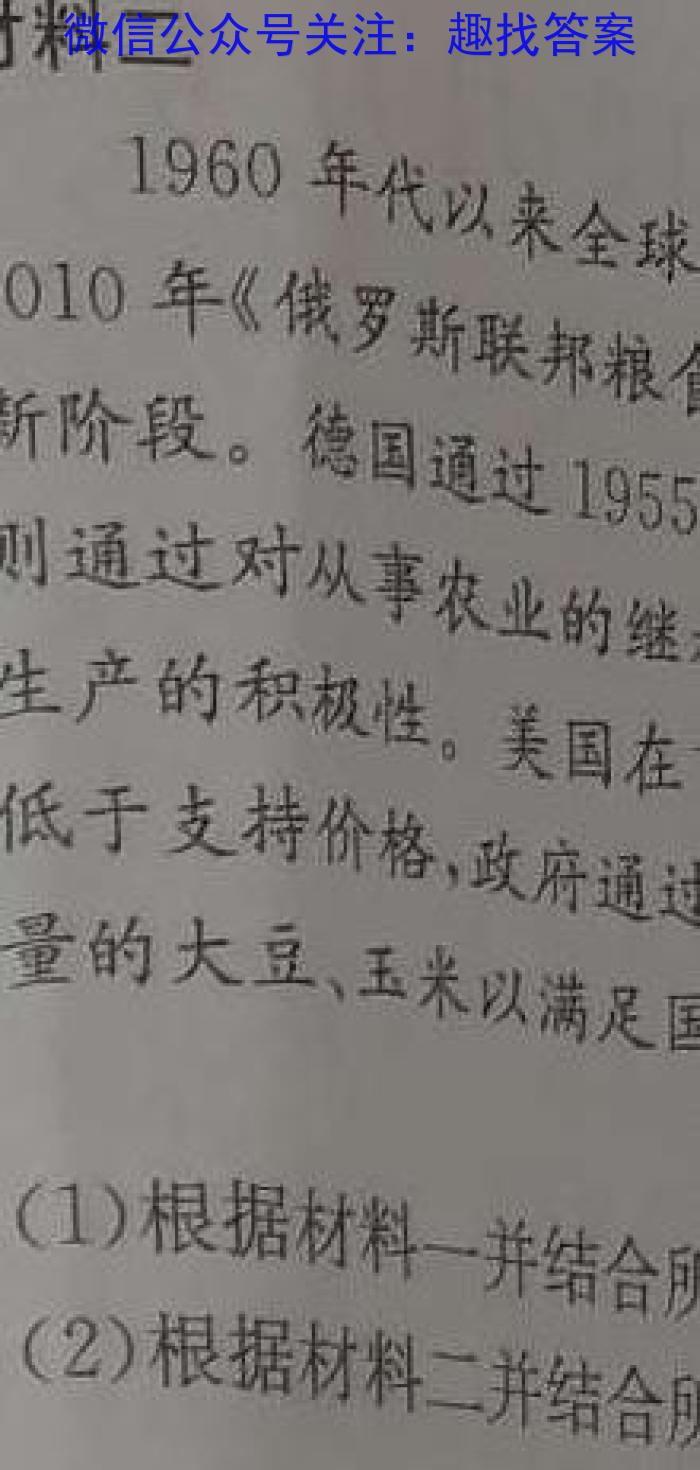 材料二
微信公众号关注：趣找答案
1960 年代以来全球
010 年《俄罗斯联邦粮食
新阶段。德国通过 1955
则通过对从事农业的继
生产的积极性。美国在
低于支持价格,政府通过
量的大豆、玉米以满足国
(1)根据材料一并结合所
(2)根据材料二并结合所